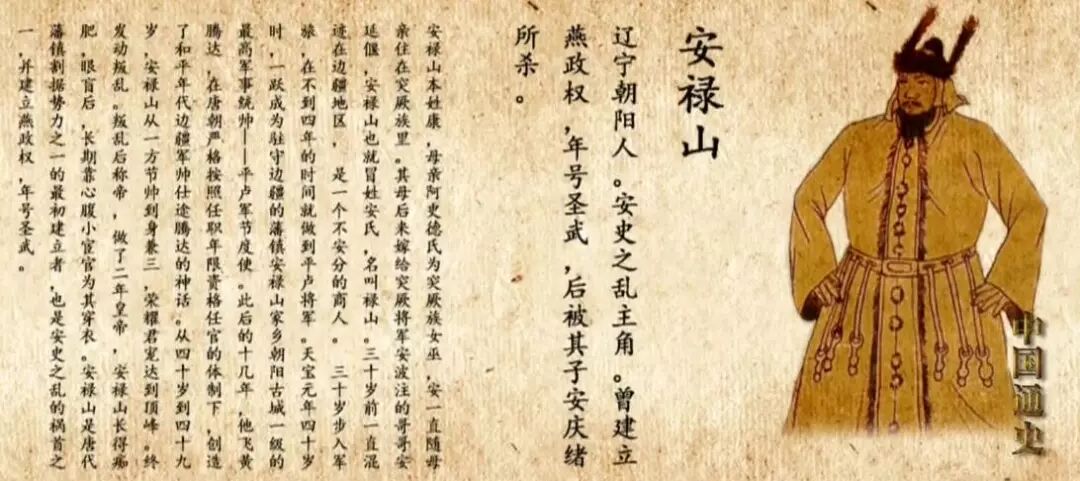 中国通史
安禄山
辽宁朝阳人。安史之乱主角。曾建立
燕政权,年号圣武,后被其子安庆绪
所杀。
安禄山本姓康,母亲阿史德氏为突厥族女巫,安一直随母
亲住在突厥族里。其母后来嫁给突厥将军安波注的哥哥安
延偃,安禄山也就冒姓安氏,名叫禄山。三十岁前一直混
迹在边疆地区,是一个不安分的商人。三十岁步入军
旅,在不到四年的时间就做到平卢将军。天宝元年四十岁
时,一跃成为驻守边疆的藩镇安禄山家乡朝阳古城一级的
最高军事统帅——平卢军节度使。此后的十几年,他飞黄
腾达,在唐朝严格按照任职年限资格任官的体制下,创造
了和平年代边疆军帅仕途腾达的神话。从四十岁到四十九
岁,安禄山从一方节帅到身兼三,荣耀君宠达到顶峰。终
发动叛乱。叛乱后称帝,做了二年皇帝,安禄山长得痴
肥,眼盲后,长期靠心腹小宦官为其穿衣。安禄山是唐代
藩镇割据势力之一的最初建立者,也是安史之乱的祸首之
一,并建立燕政权,年号圣武。